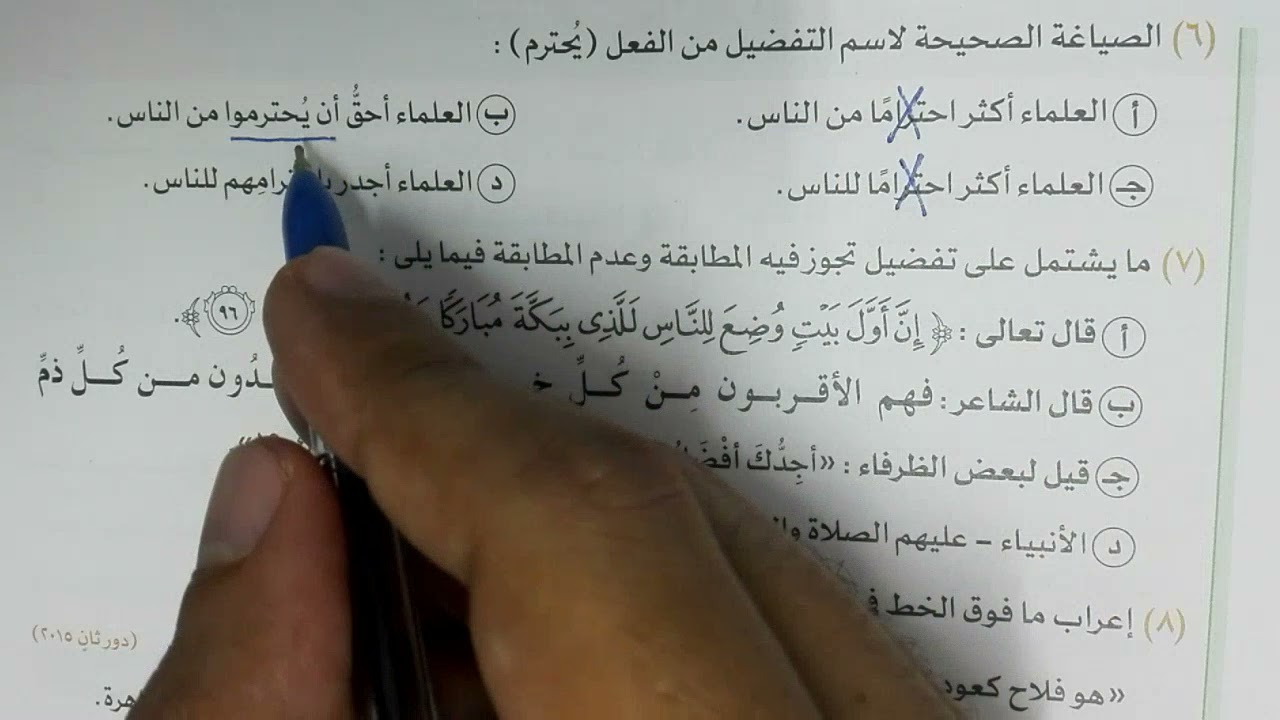 (٦) الصياغة الصحيحة لاسم التفضيل من الفعل (يُحترم) :
أ العلماء أكثر احترامًا من الناس. ب العلماء أحقُّ أن يُحترموا من الناس.
جـ العلماء أكثر احترامًا للناس. د العلماء أجدر للناس.
(٧) ما يشتمل على تفضيل تجوز فيه المطابقة وعدم المطابقة فيما يلى :
أ قال تعالى : ﴿ إِنَّ أَوَّلَ بَيْتٍ وُضِعَ لِلنَّاسِ لَلَّذِى بِبَكَّةَ مُبَارَكًا ٩٦ ﴾.
ب قال الشاعر : فهم الأقربون مِنْ كُلِّ من كُلِّ ذمِّ
جـ قيل لبعض الظرفاء : «أجِدُّكَ
د الأنبياء – عليهم الصلاة
(٨) إعراب ما فوق الخط
(دور ثانٍ ٢٠١٥)
«هو فلاح كعود